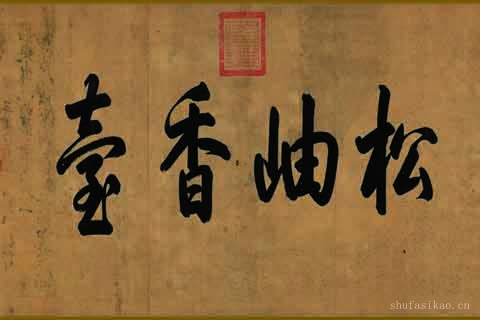 松岫香臺
shufasikao.cn